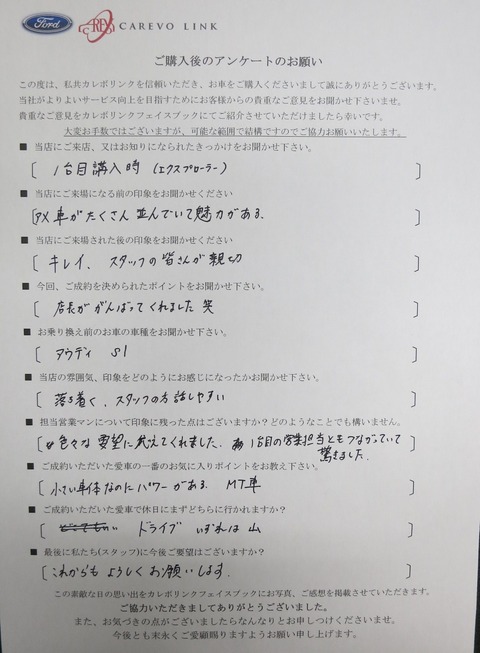 Ford CREVO CAREVO LINK
ご購入後のアンケートのお願い
この度は、私共カレボリンクを信頼いただき、お車をご購入くださいまして誠にありがとうございます。
当社がよりよいサービス向上を目指すためにお客様からの貴重なご意見をお聞かせ下さいませ。
貴重なご意見をカレボリンクフェイスブックにてご紹介させていただけましたら幸いです。
大変お手数ではございますが、可能な範囲で結構ですのでご協力お願いいたします。
■ 当店にご来店、又はお知りになられたきっかけをお聞かせ下さい。
[ 1台目購入時 (エクスプローラー) ]
■ 当店にご来場になる前の印象をお聞かせください
[アメ車がたくさん並んでいて魅力がある。 ]
■ 当店にご来場された後の印象をお聞かせください
[ キレイ、スタッフの皆さんが親切 ]
■ 今回、ご成約を決められたポイントをお聞かせ下さい。
[ 店長ががんばってくれました 笑 ]
■ お乗り換え前のお車の車種をお聞かせ下さい。
[ アウディ S1 ]
■ 当店の雰囲気、印象をどのようにお感じになったかお聞かせ下さい。
[ 落ち着く、スタッフの方話しやすい ]
■ 担当営業マンについて印象に残った点はございますか？どのようなことでも構いません。
[ 色々な要望に応えてくれました。 1台目の営業担当ともつながっていて
驚きました。 ]
■ ご成約いただいた愛車の一番のお気に入りポイントをお教え下さい。
[ 小さい車体なのにパワーがある。 MT車 ]
■ ご成約いただいた愛車で休日にまずどちらに行かれますか？
[ ドライブ いずれは山 ]
■ 最後に私たち(スタッフ)に今後ご要望はございますか？
[ これからもよろしくお願いします。 ]
この素敵な日の思い出をカレボリンクフェイスブックにお写真、ご感想を掲載させていただきます。
ご協力いただきましてありがとうございました。
また、お気づきの点がございましたらなんなりとお申しつけくださいませ。
今後とも末永くご愛顧賜りますようお願い申し上げます。